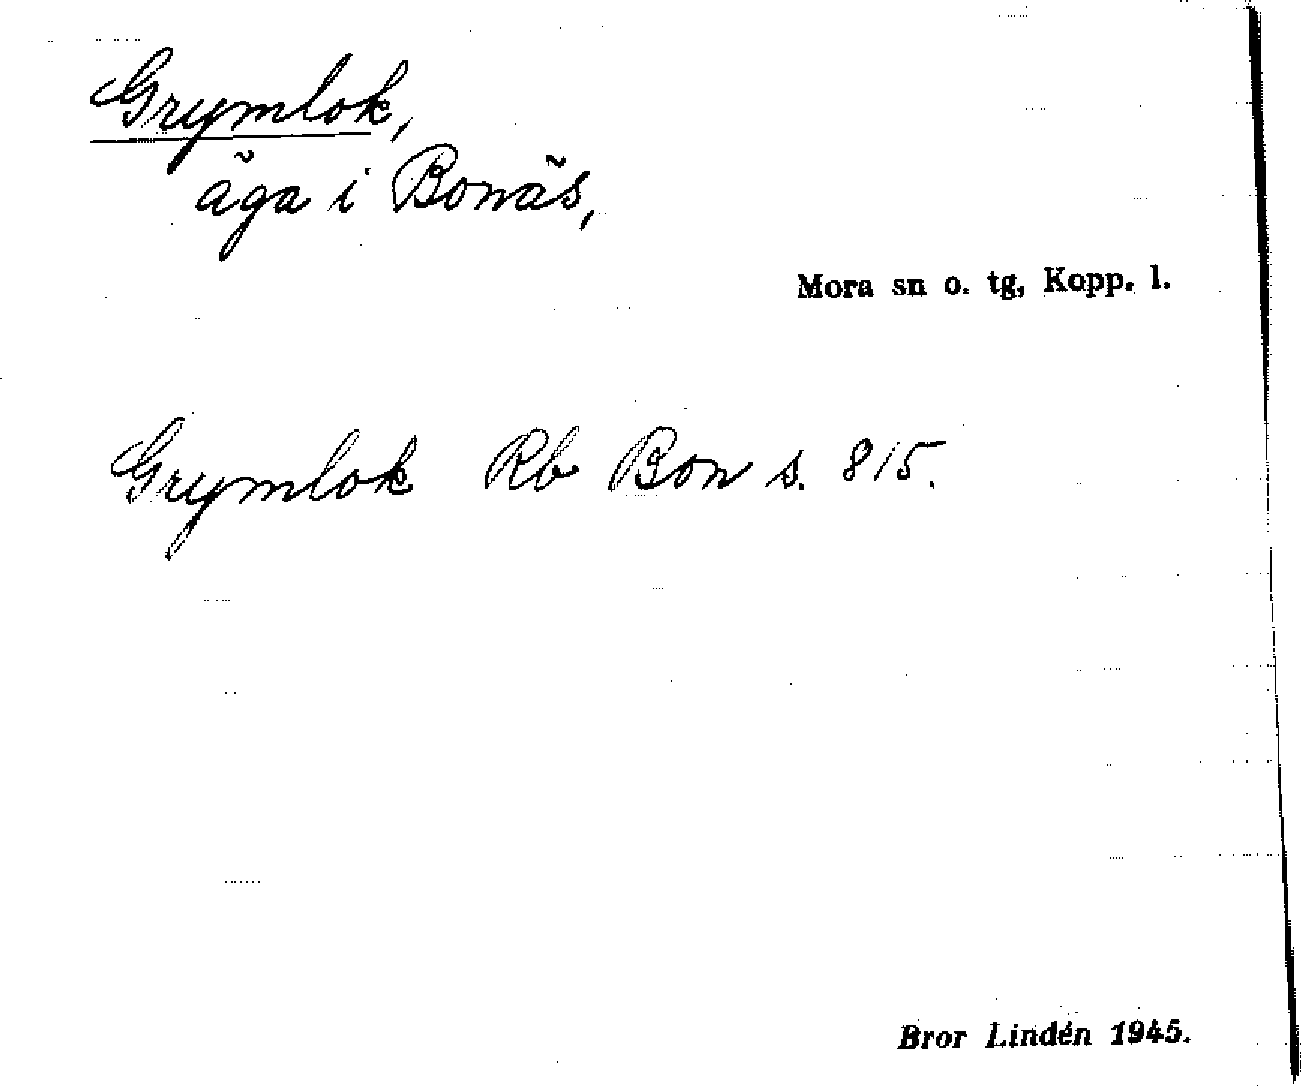 Grymlok,
äga i Bonäs,
Mora sn o. tg, Kopp. l.
Grymlok Rb Bon s. 815.
Bror Lindén 1945.